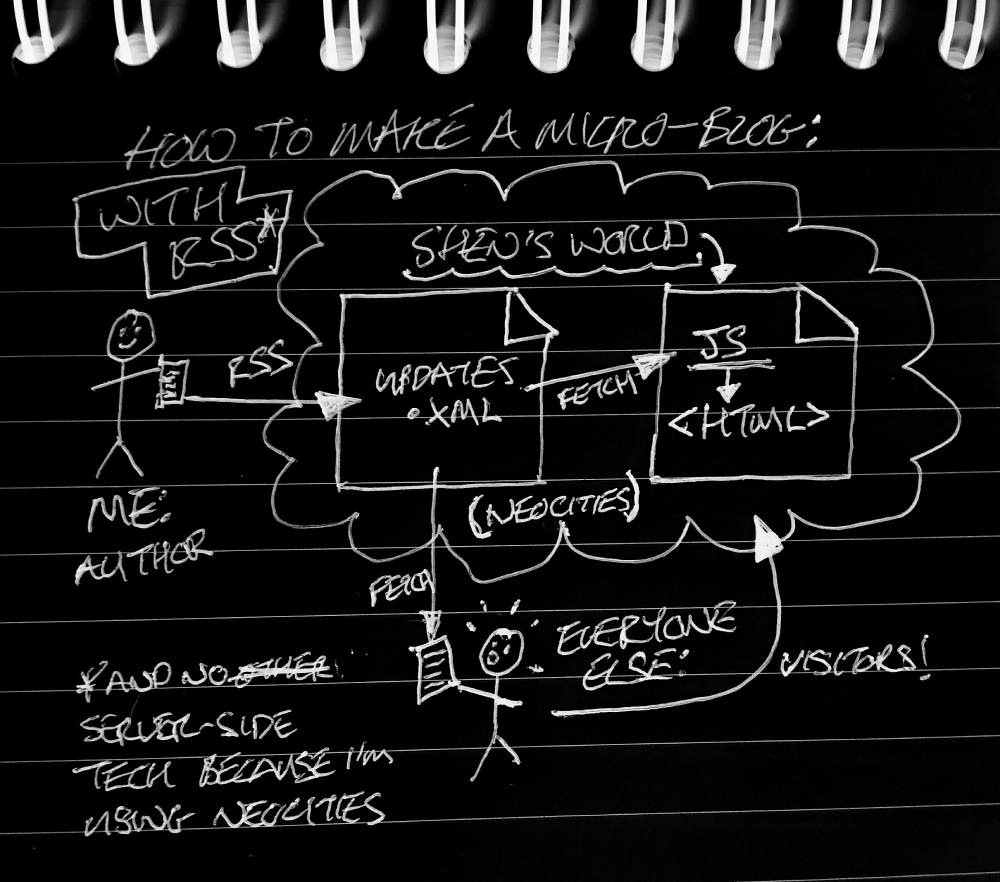 HOW TO MAKE A MICRO-BLOG:
WITH
RSS*
SHEN'S WORLD
RSS
UPDATES
.XML
FETCH
JS
<HTML>
(NEOCITIES)
ME:
AUTHOR
FETCH
EVERYONE
ELSE:
VISITORS!
* AND NO OTHER
SERVER-SIDE
TECH BECAUSE I'M
USING NEOCITIES